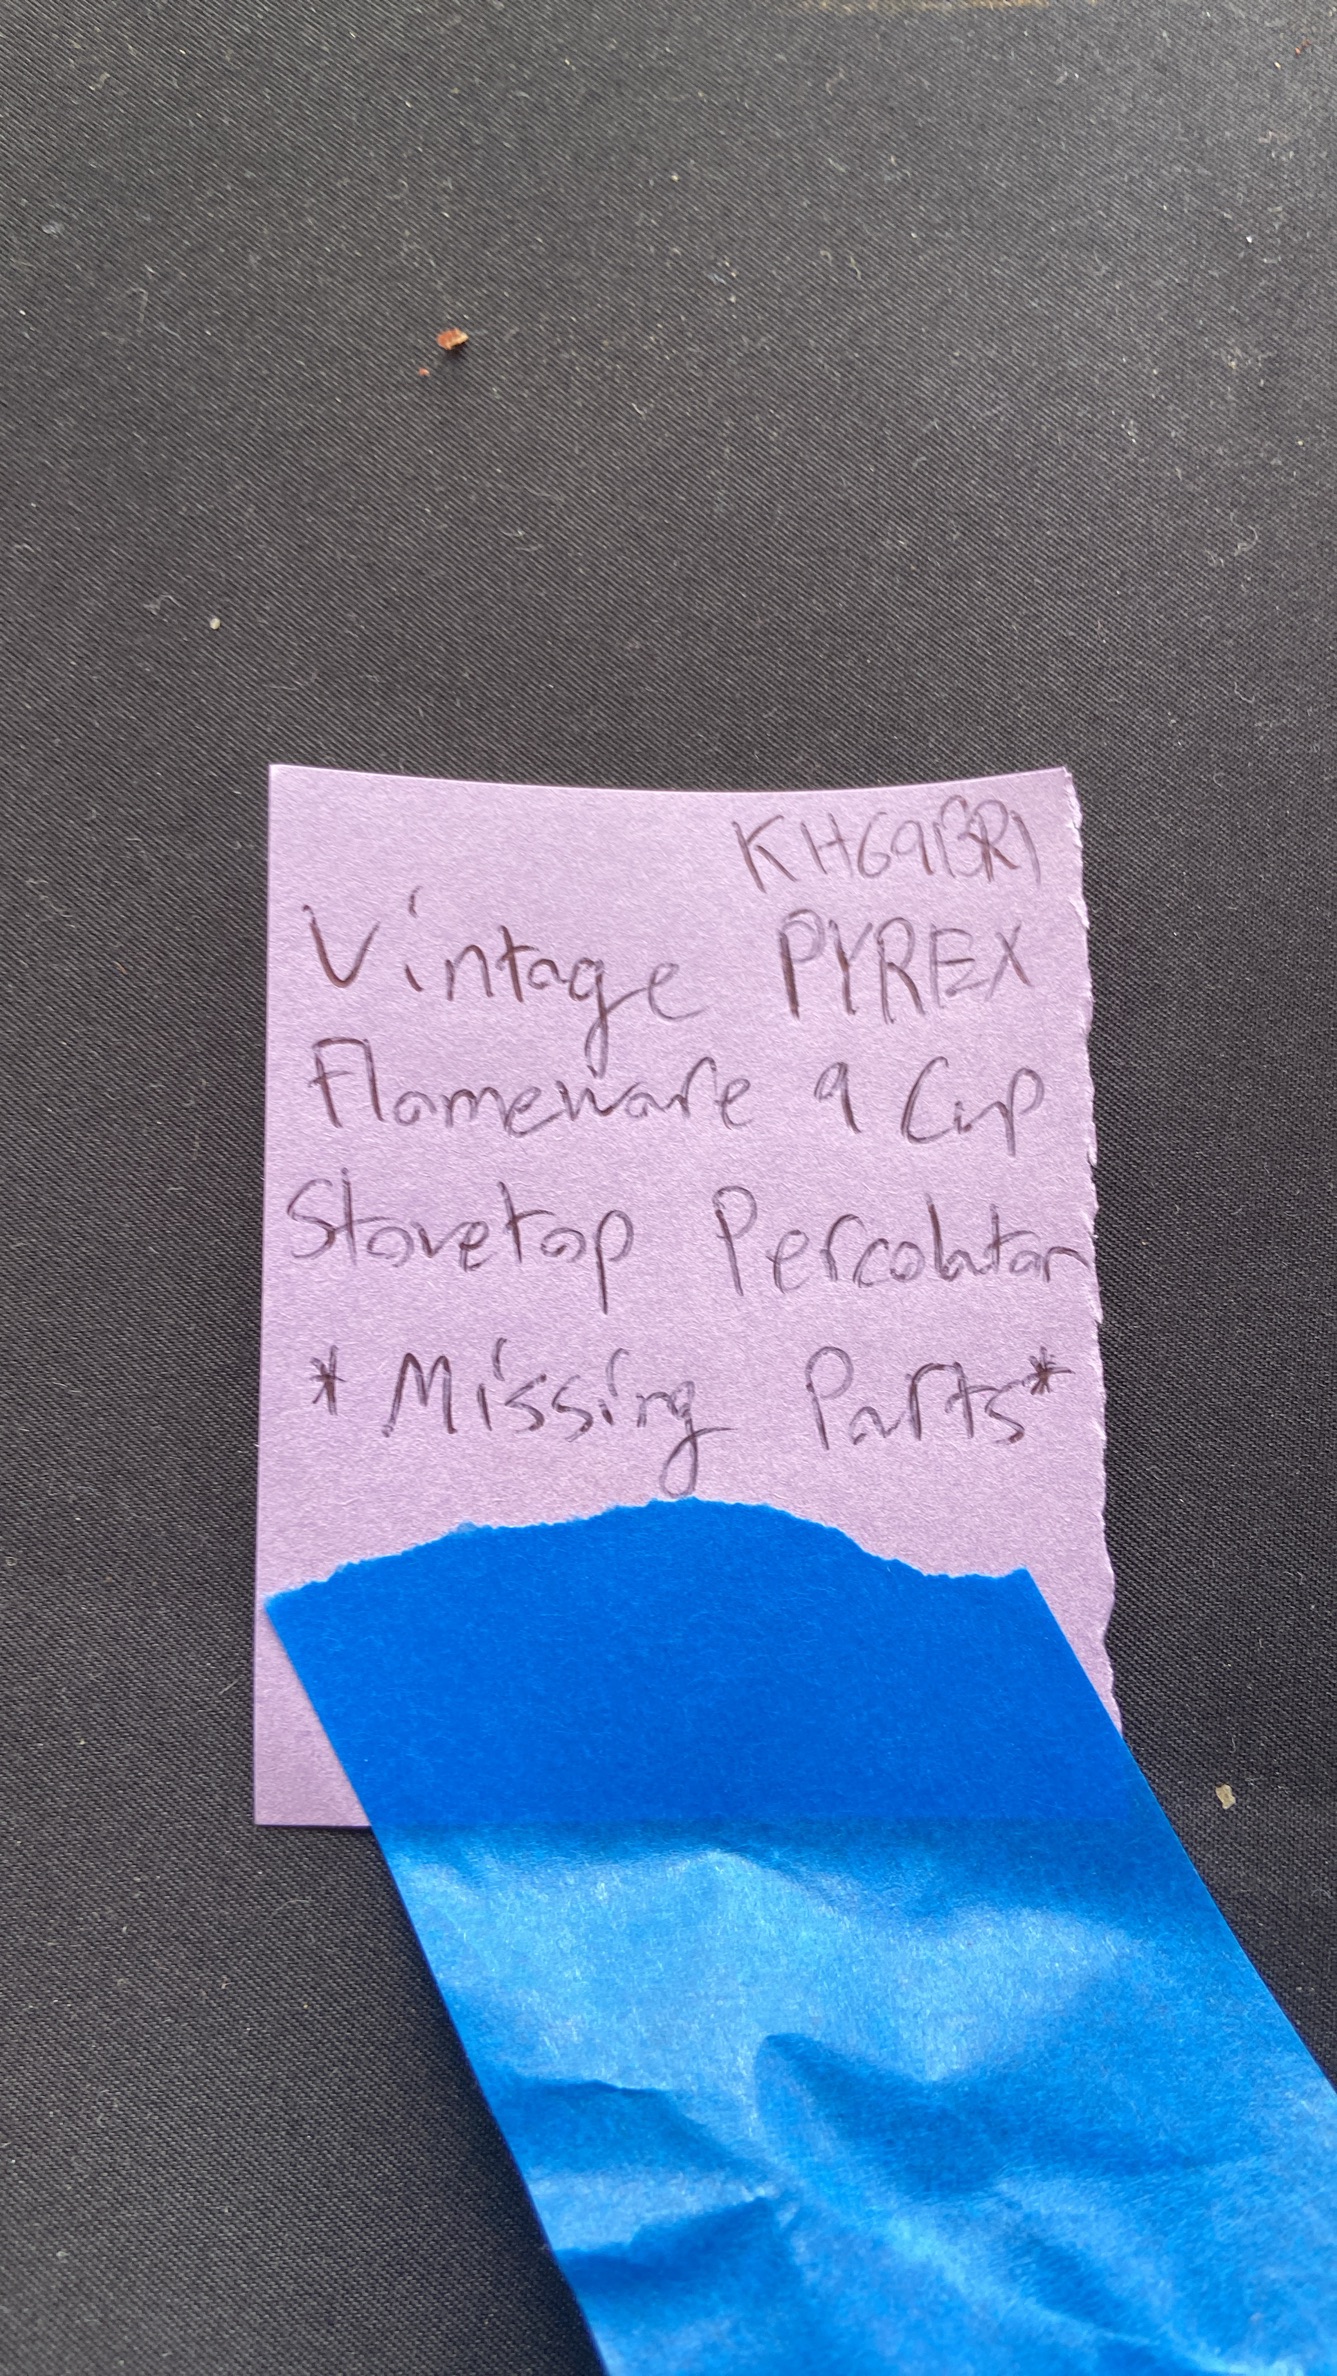 KH69BR1
Vintage PYREX
Flameware 9 Cup
Stovetop Percolator
*Missing Parts*